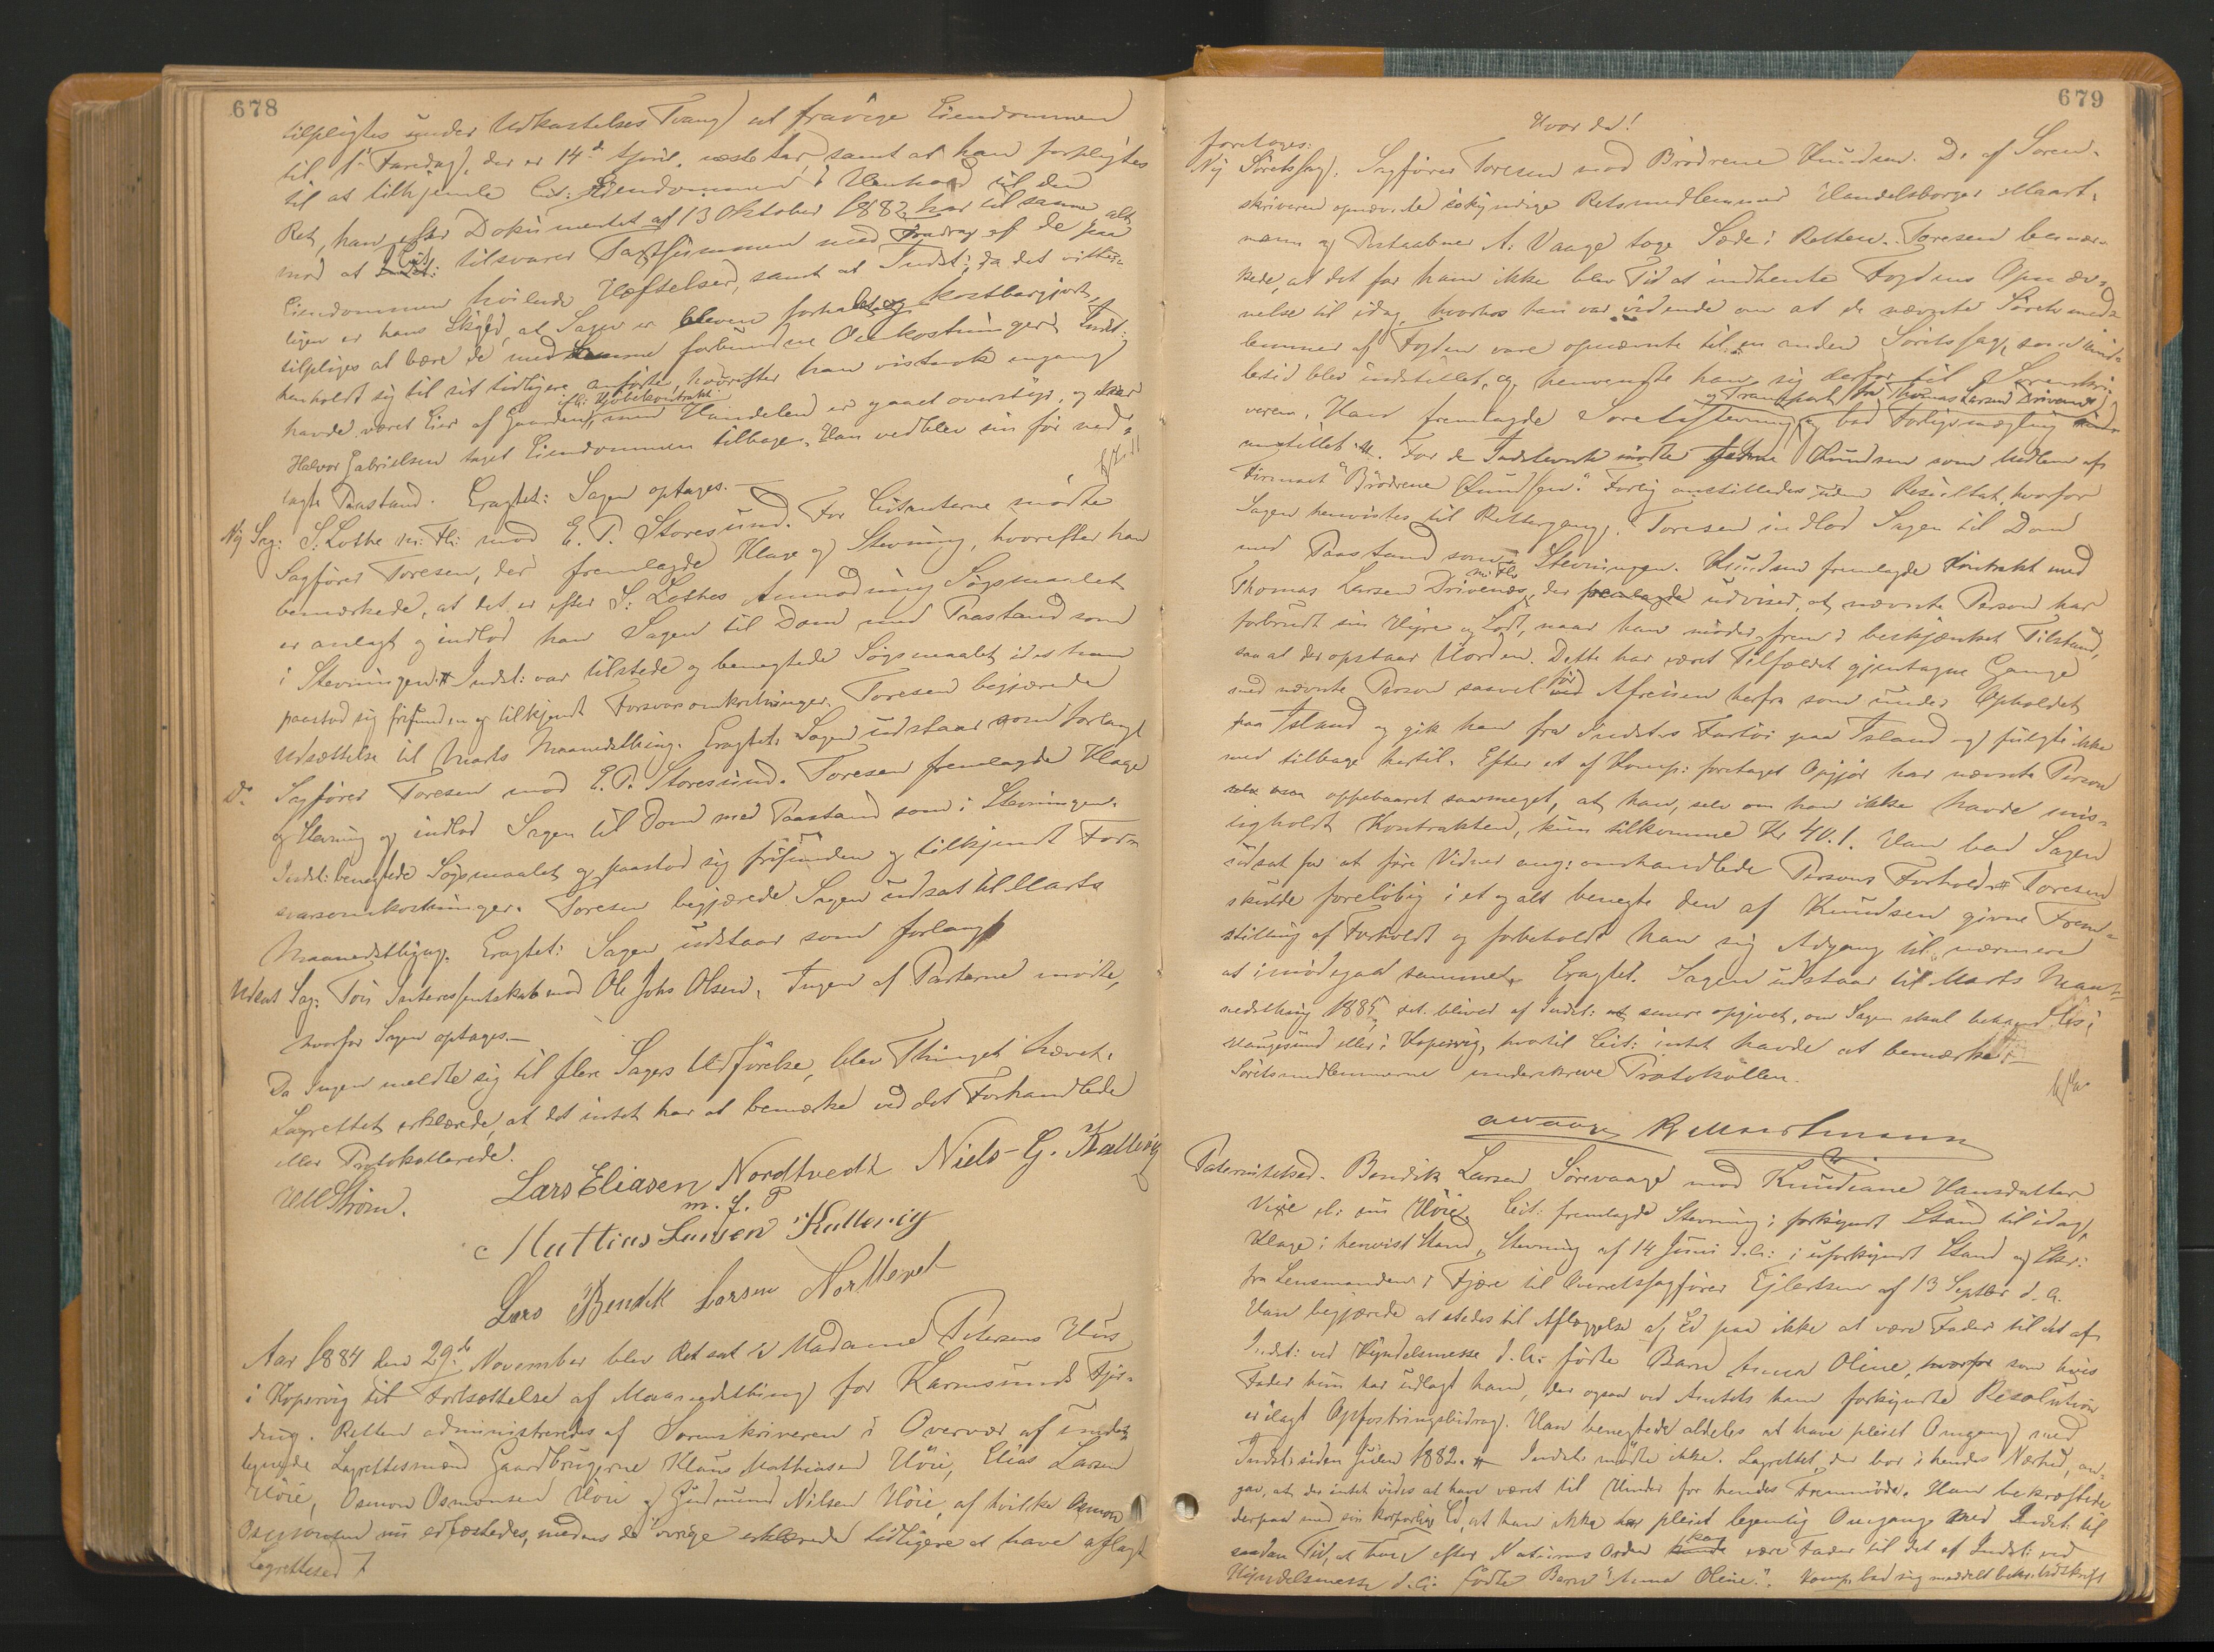 678
tilpligtes under Udkastelses Tvang at fravige Eiendommen
til 1ste Faredag, der er 14de April næste Aar, samt at han forpligtes
til at tilhjemle Cit: Eiendommen i Henhold til den
Ret, han efter Dokumentet af 13 Oktober 1882 har til samme, alt
mod at Cit: tilsvarer Taxtsummen med Fradrag af de paa
Eiendommen hvilende Heftelser, samt at Indst:, da det vitter-
ligen er hans Skyld, at Sagen er bleven forhalet og kostbargjort,
tilpligtes at bære de med samme forbundne Omkostninger. Indst:
henholdt sig til sit tidligere anførte, hvorefter han vistnok engang
havde været Eier af Gaarden ifl: Kjøbekontrakt, men Handelen er gaaet overstyr, og
Halvor Gabrielsen taget Eiendommen tilbage. Han vedblev sin før ned-
lagte Paastand. Eragtet: Sagen optages.—
Ny Sag: S. Lothe m: Fl: mod E. P. Storesund. For Citanterne mødte
Sagfører Toresen, der fremlagde Klage og Stevning, hvorefter han
bemærkede, at det er efter S. Lothes Anmodning Søgsmaalet
er anlagt og indlod han Sagen til Dom med Paastand som
i Stevningen. Indst: var tilstede og benegtede Søgsmaalet idet han
paastod sig frifunden og tilkjendt Forsvarsomkostninger. Toresen begjærede
Udsættelse til Marts Maanedsthing. Eragtet: Sagen udstaar som forlangt
Do Sagfører Toresen mod E. P. Storesund. Toresen fremlagde Klage
og Stevning og indlod Sagen til Dom med Paastand som i Stevningen.
Indst: benegtede Søgsmaalet og paastod sig frifunden og tilkjendt For-
svarsomkostninger. Toresen begjærede Sagen udsat til Marts
Maanedsthing. Eragtet: Sagen udstaar som forlangt
Udsat Sag: Interessentskab mod Ole Johs Olsen. Ingen af Parterne mødte,
hvorfor Sagen optages.—
Da Ingen meldte sig til flere Sagers Udførelse, blev Thinget hævet.
Lagrettet erklærede, at det intet har at bemærke ved det Forhandlede
eller Protokollerede.
Strøm. Lars Eliasen Nordtvedt Niels G. Kallevig
m. f. P
Mattias Larsen Kallevig
Lars Bendik Larsen
Aar 1884 den 29de November blev Ret sat i Madame Petersens Hus
i Kopervig til Fortsættelse af Maanedsthing for Karmsunds Fjer-
ding. Retten administreredes af Sorenskriveren i Overvær af under-
tegnede Lagrettesmænd Gaardbrugerne Klaus Mathiasen Høie, Elias Larsen
Høie, Osmon Osmonsen Høie og Gudmund Nilsen Høie, af hvilke Osmon
Osmonsen nu edfæstedes, medens de øvrige erklærede tidligere at have aflagt
Lagretteseed
679
Hvor da!
foretages:
Ny Søretssag. Sagfører Toresen mod Brødrene Knudsen. De af Soren-
skriveren opnævnte søkyndige Retsmedlemmer Handelsborger Maart-
mann og Postaabner A. Vaage toge Sæde i Retten. Toresen bemær-
kede, at det for ham ikke blev Tid at indhente Fogdens Opnæv-
nelse til idag, hvorhos han var vidende om at de nævnte Søretsmed-
lemmer af Fogden vare opnævnte til en anden Søretssag, som imid-
lertid blev indstillet, og henvendte han sig derfor til Sorenskri-
veren. Han fremlagde Søretsstevning og Transport fra Thomas Larsen Drivenes og bad Forligsmægling
anstillet. For de Indstevnte mødte Knudsen som Medlem af
Firmaet "Brødrene Knudsen". Forlig anstilledes uden Resultat, hvorfor
Sagen henvistes til Rettergang. Toresen indlod Sagen til Dom
med Paastand som i Stevningen. Knudsen fremlagde Kontrakt med
Thomas Larsen Drivenæs m: Fl:, der udviser, at nævnte Person har
forbrudt sin Hyre og Lodt, naar han møder frem i beskjænket Tilstand,
saa at der opstaar Uorden. Dette har været Tilfældet gjentagne Gange
med nævnte Person saavel før Afreisen herfra som under Opholdet
paa Island og gik han fra Indst:s Fartøi paa Island og fulgte ikke
med tilbage hertil. Efter et af Komp: foretaget Opgjør har nævnte Person
oppebaaret saameget, at han, selv om han ikke havde mis-
ligholdt Kontrakten, kun tilkomme Kr 40.1. Han bad Sagen
udsat for at føre Vidner ang: omhandlede Persons Forhold. Toresen
skulde foreløbig i et og alt benegte den af Knudsen givne Frem-
stilling af Forholdt og forbeholdt han sig Adgang til nærmere
at imødegaa samme. Eragtet. Sagen udstaar til Marts Maa-
nedsthing 1885, det bliver af Indst: senere opgivet, om Sagen skal behandles i
Haugesund eller i Kopervig, hvortil Cit: intet havde at bemærke.
Søretsmedlemmerne underskreve Protokollen.
AVaage R Maartmann
Paternitetsed. Bendik Larsen Sørevaage mod Knudiane Hansdatter
Vige el: nu Høie. Cit: fremlagde Stevning i forkyndt Stand til idag,
Klage i henvist Stand, Stevning af 14 Juni d. A: i uforkyndt Stand og Skr:
fra Lensmanden i Fjære til Overretssagfører Ejlertsen af 13 Septbr d. A.
Han begjærede at stedes til Aflæggelse af Ed paa ikke at være Fader til det af
Indst: ved Kyndelsmesse d. A: fødte Barn Anna Oline, som hvis
Fader hun har udlagt ham, der ogsaa ved Amtets ham forkyndte Resolution
er ilagt Opfostringsbidrag. Han benegtede aldeles at have pleiet Omgang med
Indst: siden Julen 1882. Indst: mødte ikke. Lagrettet, der bor i hendes Nærhed, an-
gav, at der intet vides at have været til Hinder for hendes Fremmøde. Han bekræftede
derpaa med sin korporlige Ed, at han ikke har pleiet legemlig Omgang med Indst: til
saadan Tid, at han efter Naturens Orden kan være Fader til det af Indst: ved
Kyndelsmesse d. A: fødte Barn "Anna Oline". Komp. bad sig meddelt bekr. Udskrift